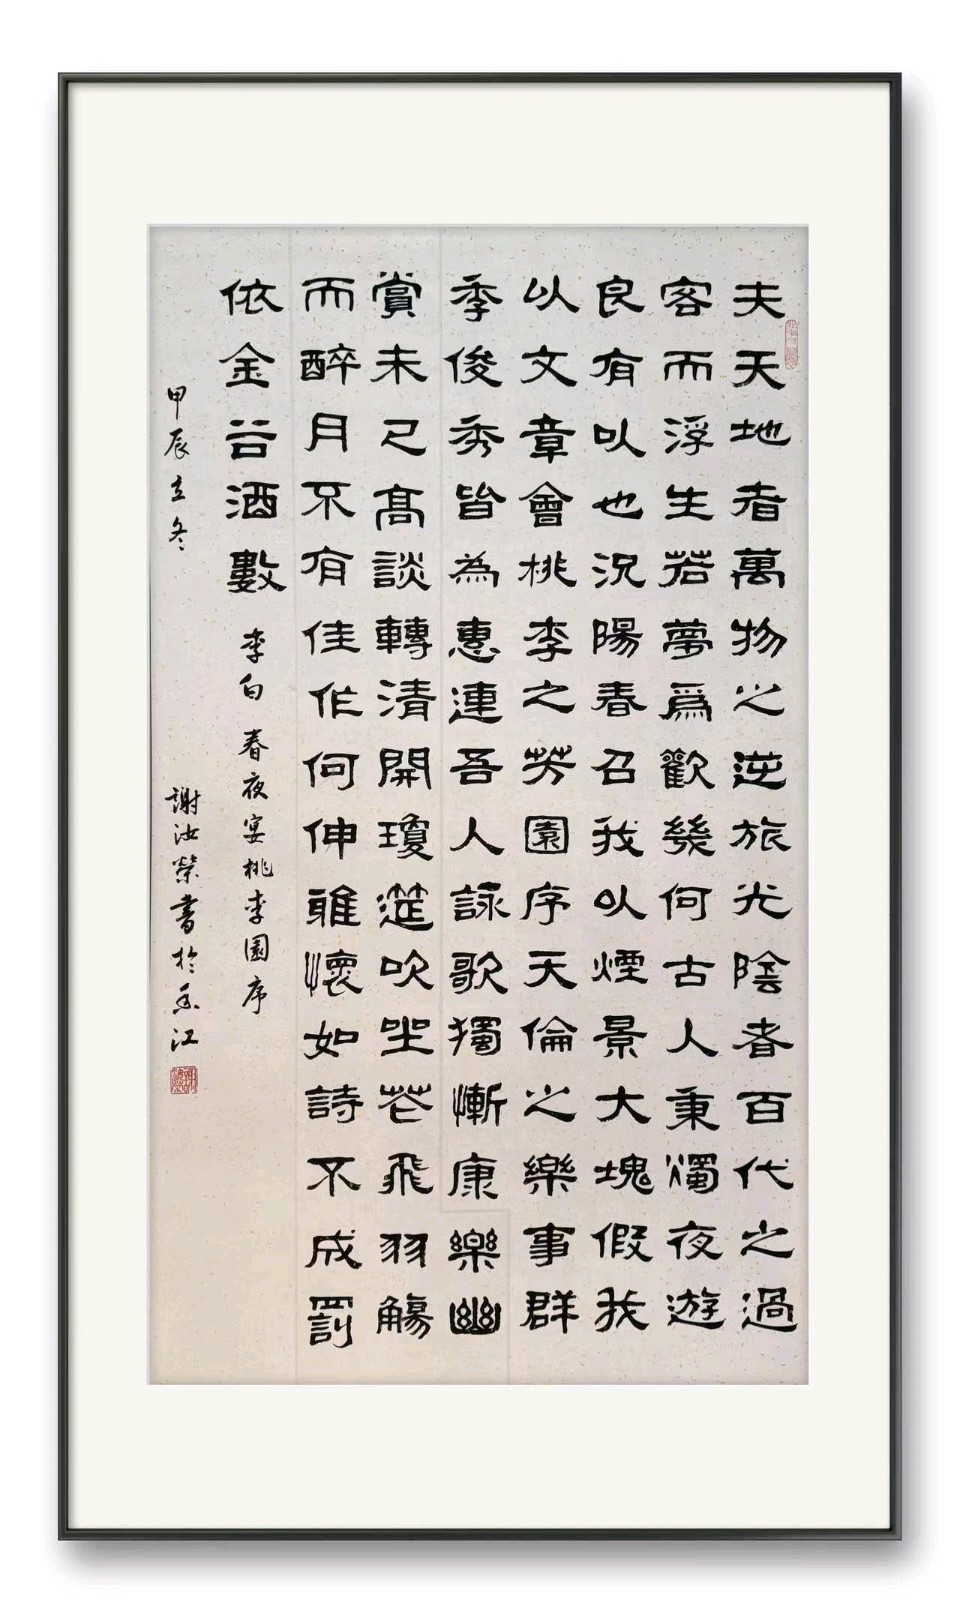 夫天地者萬物之逆旅光陰者百代之過
客而浮生若夢爲歡幾何古人秉燭夜遊
良有以也況陽春召我以煙景大塊假我
以文章會桃李之芳園序天倫之樂事群
季俊秀皆為惠連吾人詠歌獨慚康樂幽
賞未已高談轉清開瓊筵吹坐花飛羽觴
而醉月不有佳作何伸雅懷如詩不成罰
依金谷酒數 李白 春夜宴桃李園序
甲辰立冬 謝汝榮書於香江